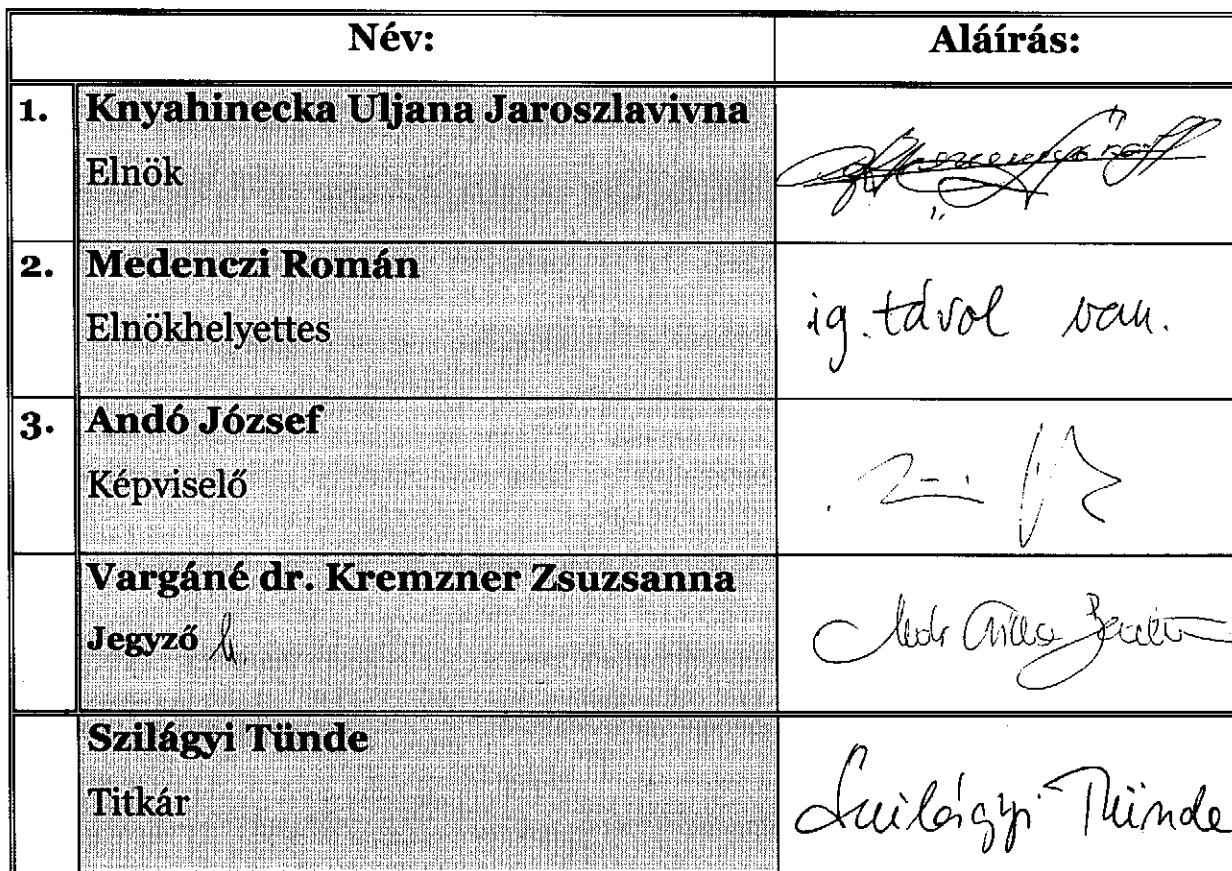 Név: Aláírás:
1. Knyahinecka Uljana Jaroszlavivna
Elnök
2. Medenczi Román
Elnökhelyettes
ig. távol van.
3. Andó József
Képviselő
Vargáné dr. Kremzner Zsuzsanna
Jegyző h.
Szilágyi Tünde
Titkár
Szilágyi Tünde